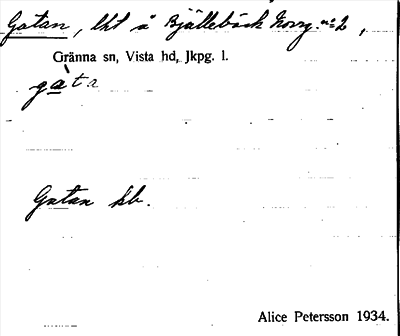 Gatan, lht å Bjällebäck Norrg. nº 2,
Gränna sn, Vista hd, Jkpg. l.
gàta
Gatan kb.
Alice Petersson 1934.